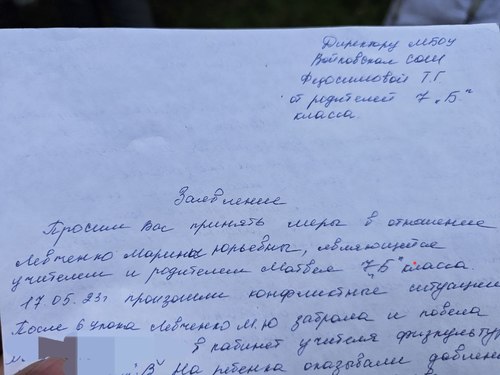 Директору МБОУ
Войковской СОШ
Федосимовой Т.Г
от родителей 7 "Б"
класса
Заявление
Просим Вас принять меры в отношение
Левченко Марины Юрьевны, являющейся
учителем и родителем Матвея 7 "Б" класса.
17.05.23г произошли конфликтные ситуации
После 6 урока Левченко М.Ю забрала и повела
в кабинет учителя физкультур
"В" На ребенка оказывали давлени